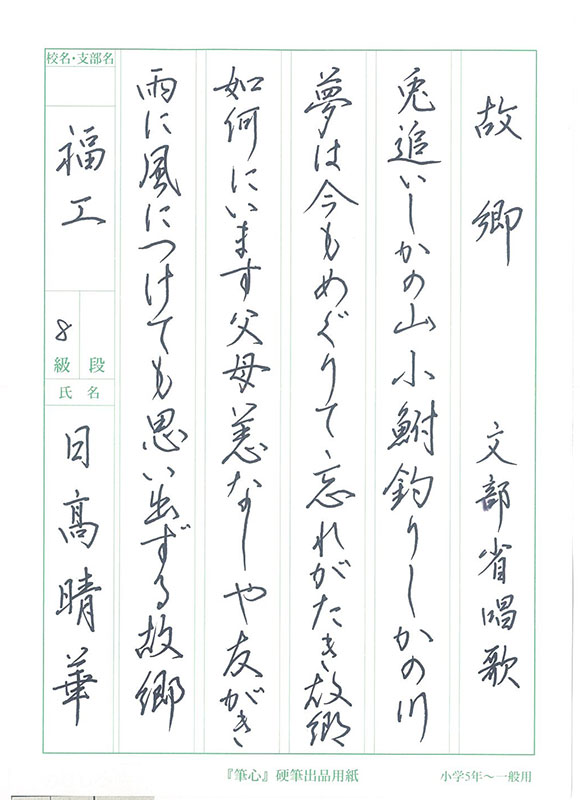 故郷 文部省唱歌
兎追いしかの山小鮒釣りしかの川
夢は今もめぐりて忘れがたき故郷
如何にいます父母恙なしや友がき
雨に風につけても思い出ずる故郷
校名・支部名
福工
段
8級
氏名
日髙晴華
『筆心』硬筆出品用紙
小学5年〜一般用